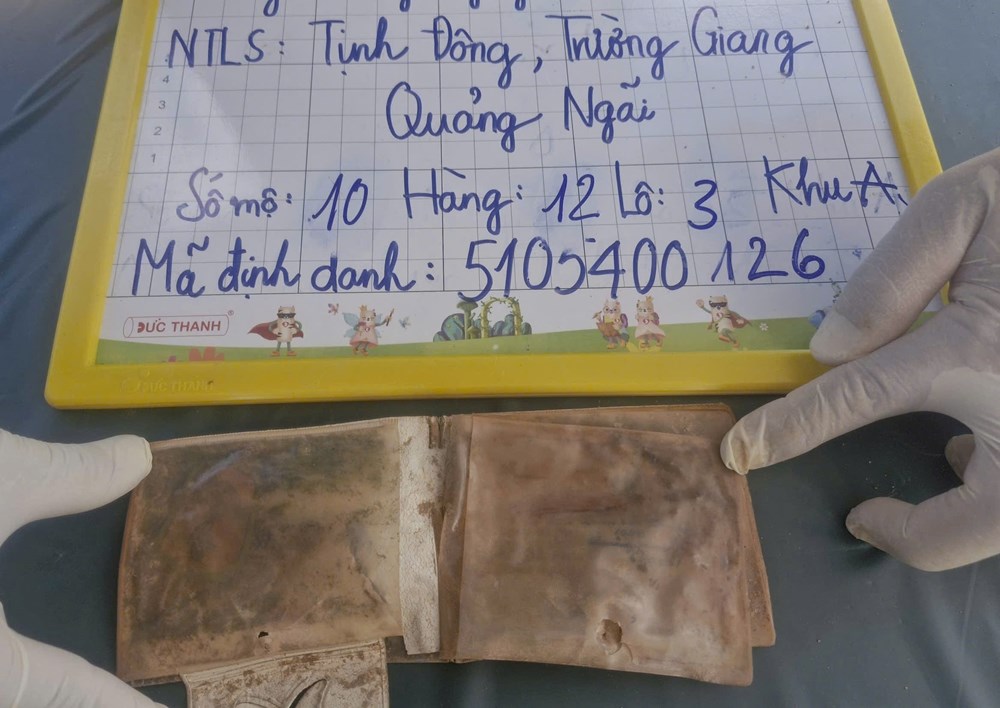 NTLS: Tịnh Đông, Trường Giang
Quảng Ngãi
Số mộ: 10 Hàng: 12 Lô: 3 Khu A.
Mã định danh: 5105400126
4
3
2
1
ĐỨC THANH
ĐỨC THÀNH